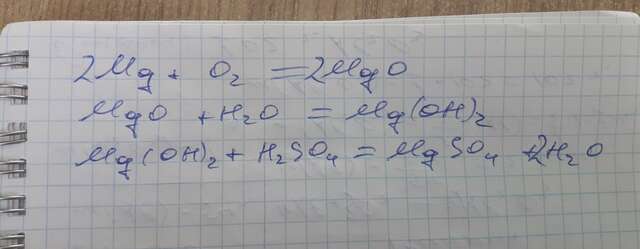 2Mg + O₂ = 2MgO
MgO + H₂O = Mg(OH)₂
Mg(OH)₂ + H₂SO₄ = MgSO₄ + 2H₂O